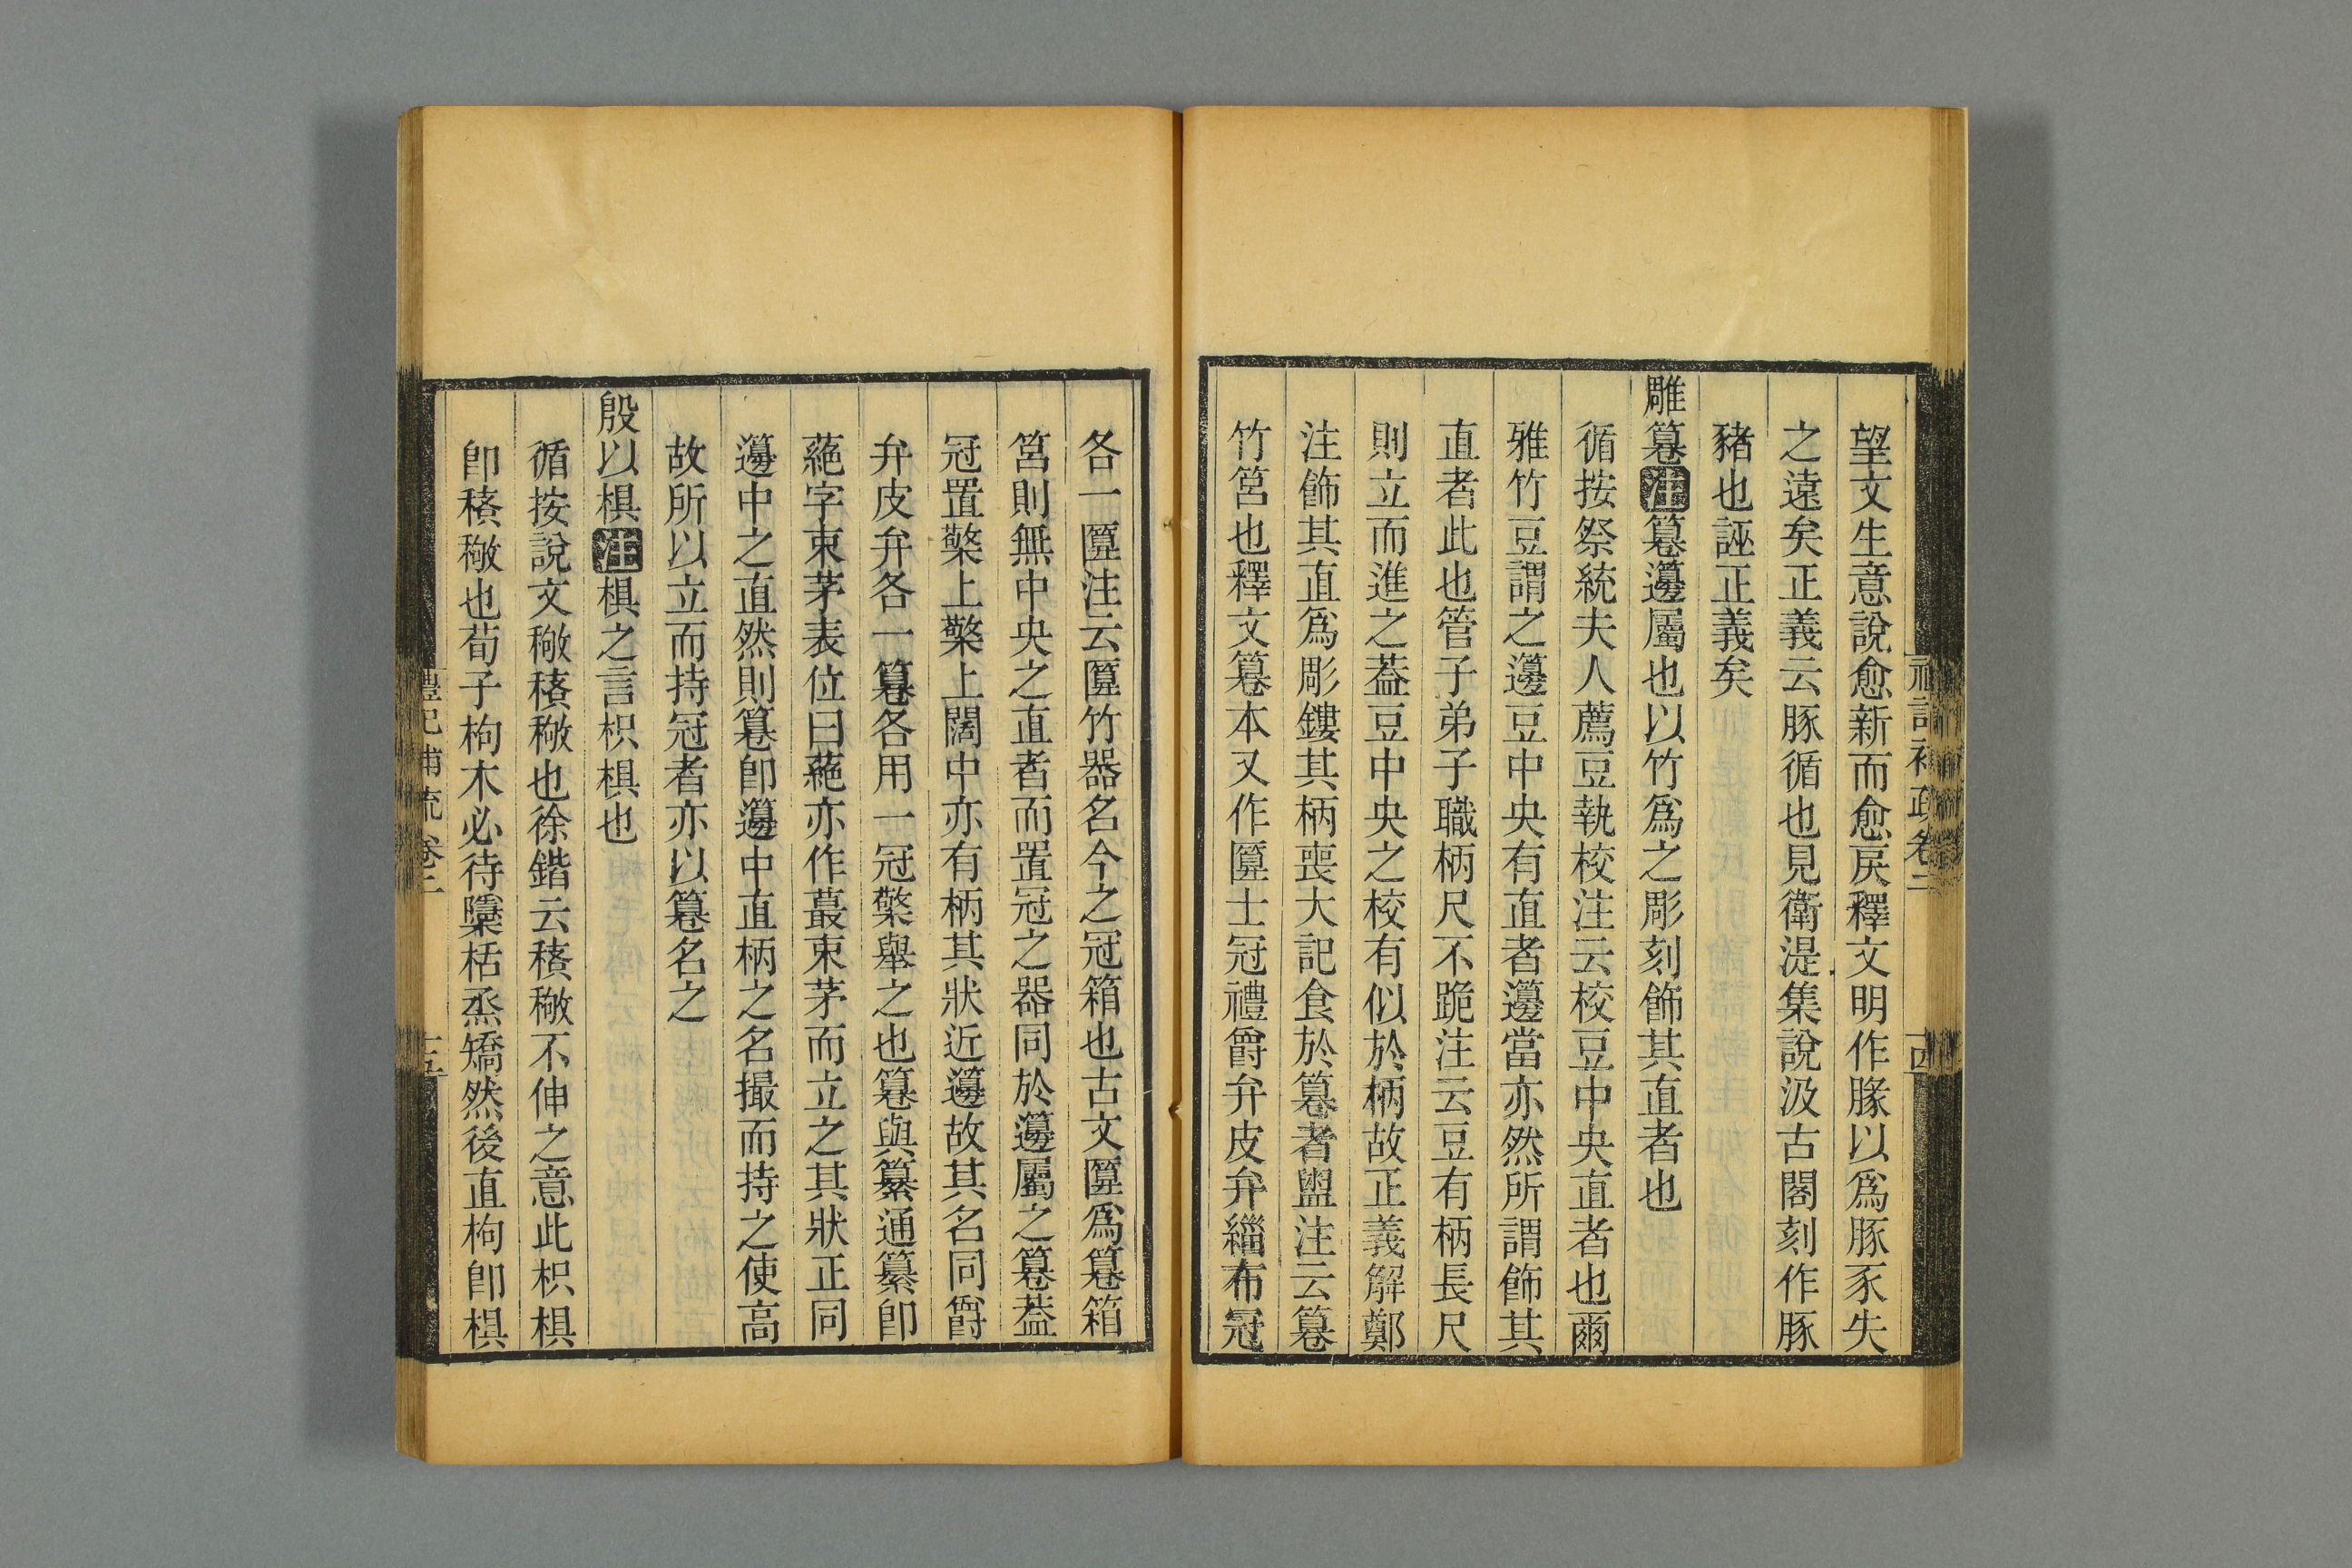 望文生意說愈新而愈戾釋文明作腞以爲豚豕失
之遠矣正義云豚循也見衛湜集說汲古閣刻作豚
豬也誣正義矣
雕篹注篹籩屬也以竹爲之彫刻飾其直者也
循按祭統夫人薦豆執校注云校豆中央直者也爾
雅竹豆謂之籩豆中央有直者籩當亦然所謂飾其
直者此也管子弟子職柄尺不跪注云豆有柄長尺
則立而進之葢豆中央之校有似於柄故正義解鄭
注飾其直爲彫鏤其柄喪大記食於篹者盥注云篹
竹筥也釋文篹本又作匴士冠禮爵弁皮弁緇布冠
各一匴注云匴竹器名今之冠箱也古文匴爲篹箱
筥則無中央之直者而置冠之器同於籩屬之篹葢
冠置檠上檠上闊中亦有柄其狀近籩故其名同爵
弁皮弁各一篹各用一冠檠舉之也篹與纂通纂卽
蕝字束茅表位曰蕝亦作蕞束茅而立之其狀正同
籩中之直然則篹卽籩中直柄之名撮而持之使高
故所以立而持冠者亦以篹名之
殷以椇注椇之言枳椇也
循按說文𥡴䅩𥡴也徐鍇云䅩𥡴不伸之意此枳椇
卽䅩𥡴也荀子枸木必待檃栝烝矯然後直枸卽椇
禮記補疏卷二
十五